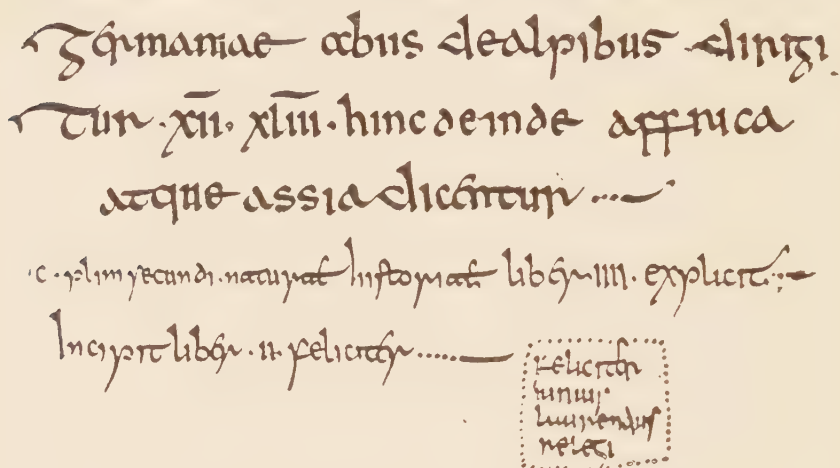 Germaniae abiis dealpibus dirigi
Tur · x̄ı̄ı̄ · xl̄ı̄ı̄ı̄ · hinc deinde affrica
atque assia dicentur
· c · plini secundi · naturał historiał liber · IIII · explicit
Incipit liber · u · feliciter
feliciter
iunius
laurentius
relegi